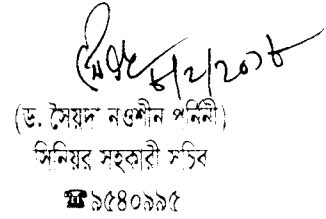 ৮/২/২০১৮
(ড. সৈয়দা নওশীন পর্ণিনী)
সিনিয়র সহকারী সচিব
☎৯৫৪০৯৯৫